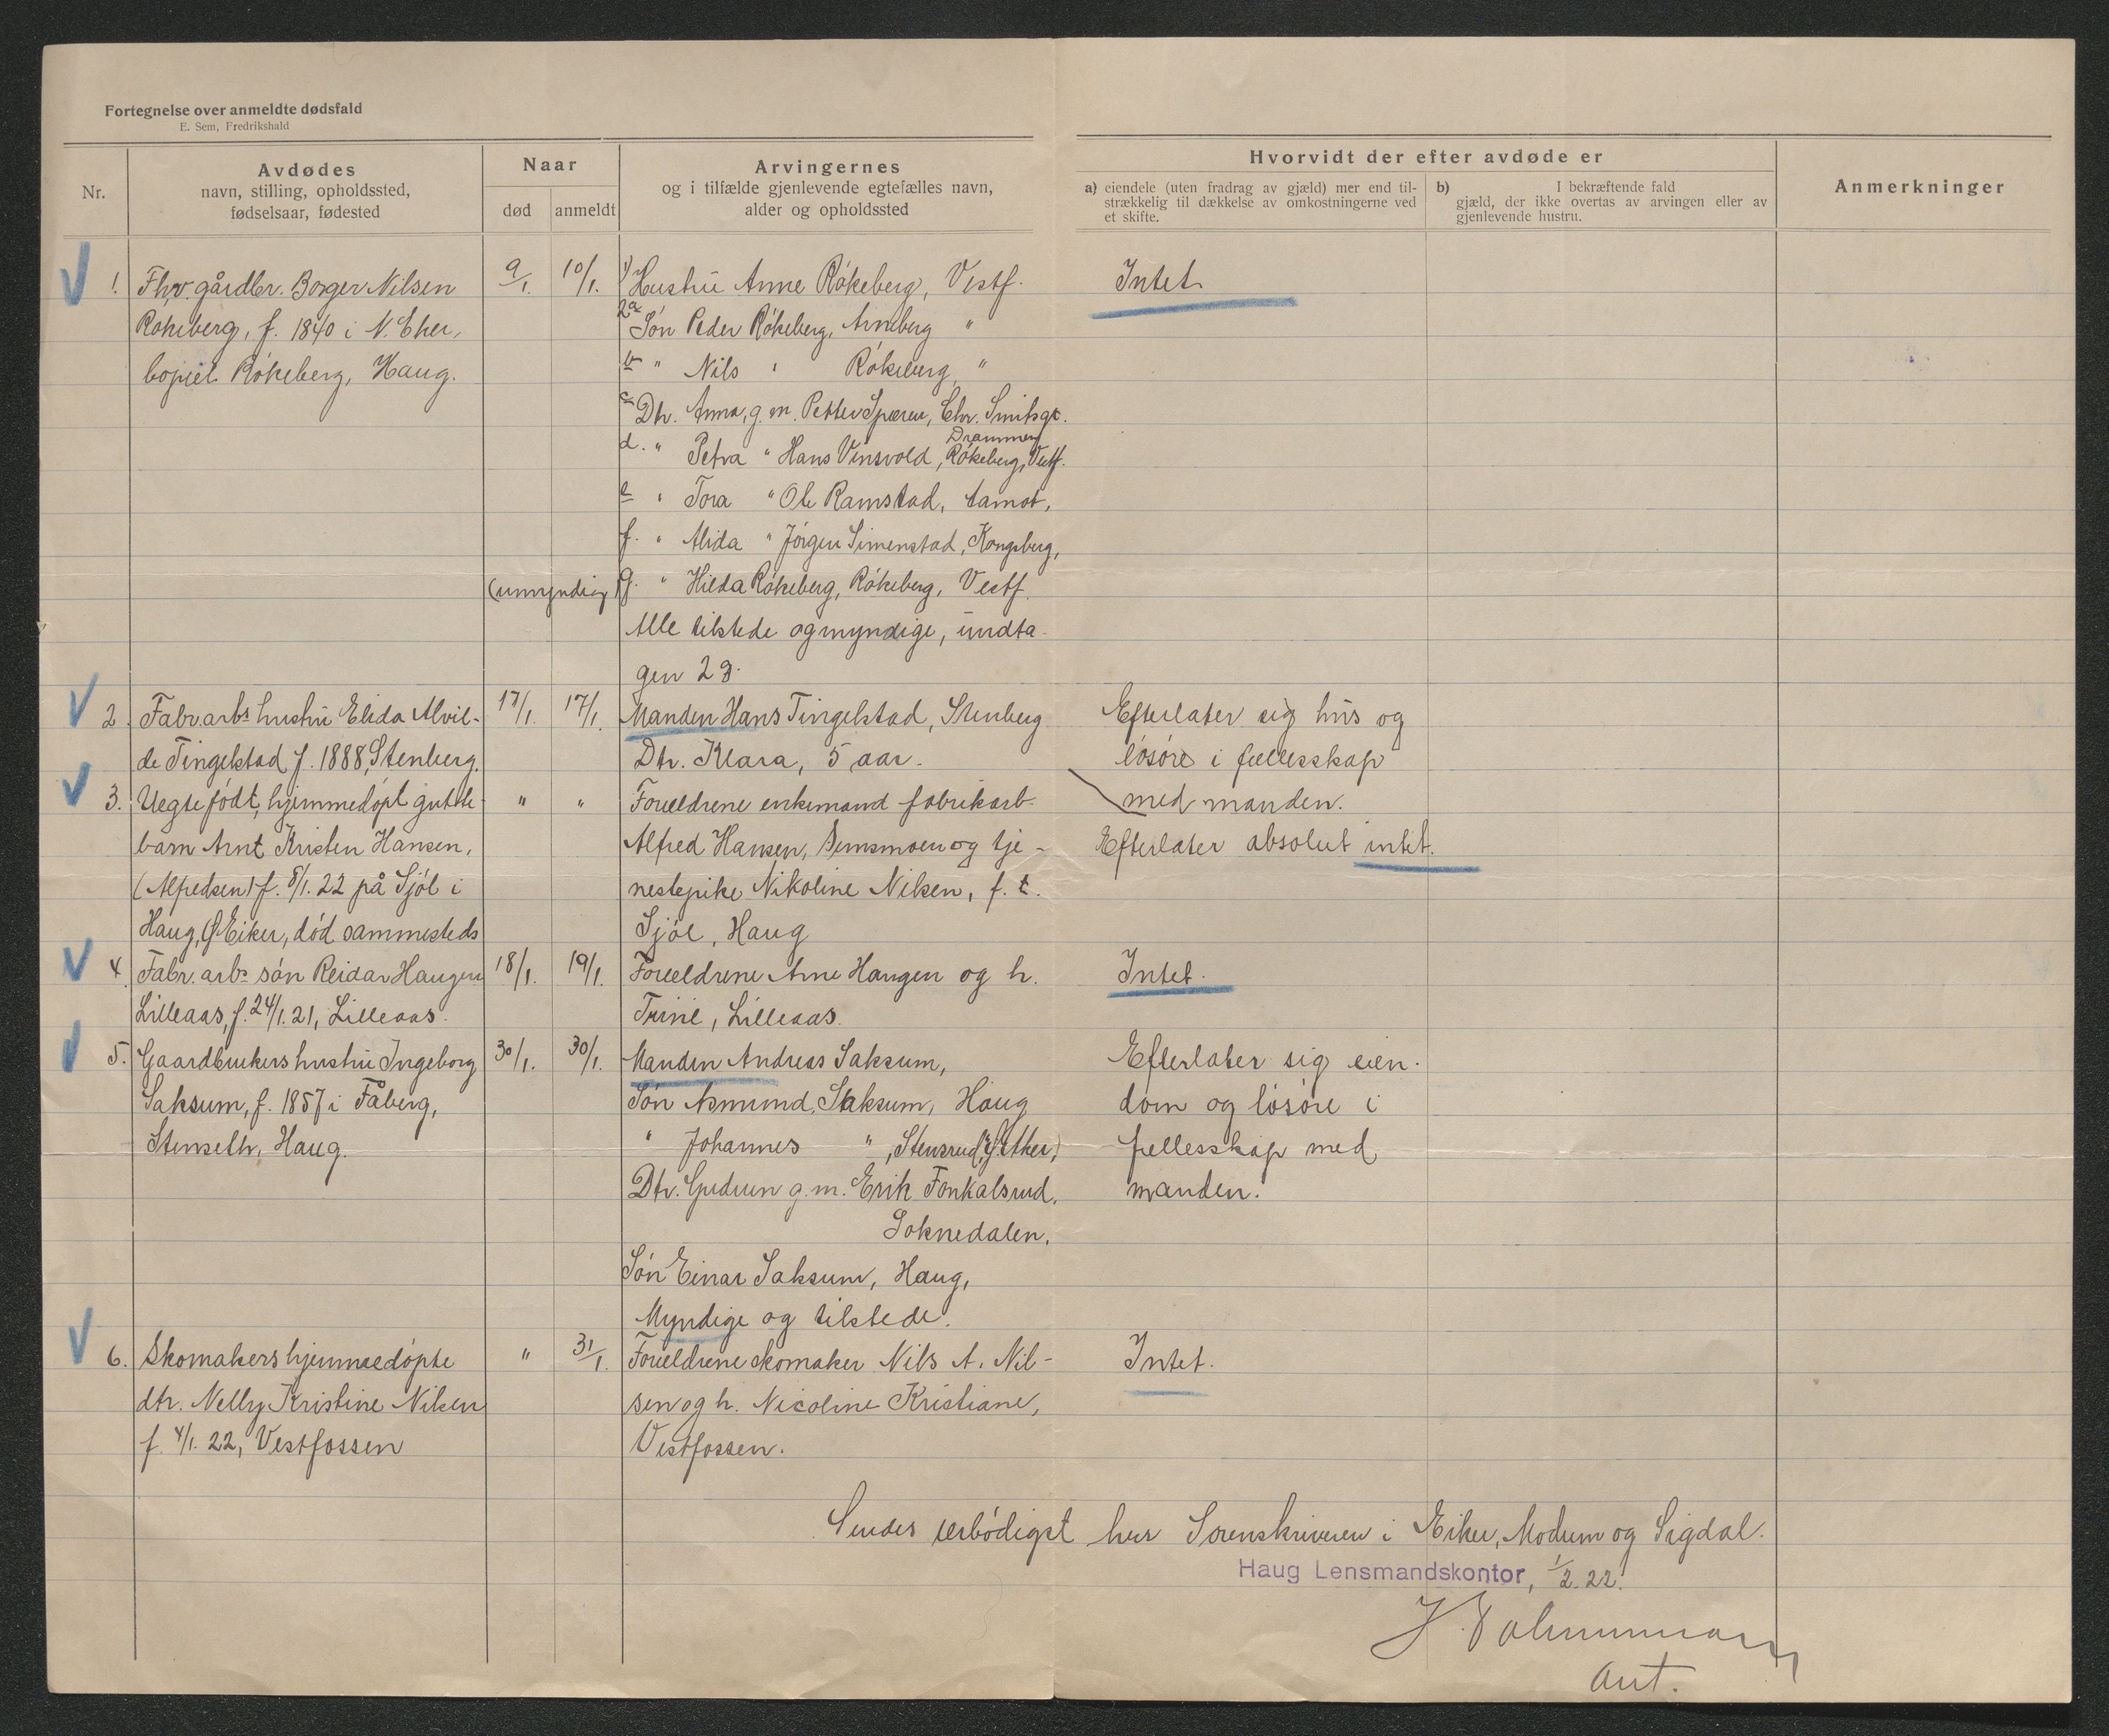 Fortegnelse over anmeldte dødsfald
E. Sem, Fredrikshald
Nr.
Avdødes
navn, stilling, opholdssted,
fødselsaar, fødested
Naar
død
anmeldt
Arvingernes
og i tilfælde gjenlevende egtefælles navn,
alder og opholdssted
Hvorvidt der efter avdøde er
a) eiendele (uten fradrag av gjæld) mer end til-
strækkelig til dækkelse av omkostningerne ved
et skifte.
b) I bekræftende fald
gjæld, der ikke overtas av arvingen eller av
gjenlevende hustru.
Anmerkninger
1. Fhv. gårdbr. Borger Nilsen
Rökeberg, f. 1840 i N. Eker,
bopiel Rökeberg, Haug.
9/1.
10/1.
1) Hustru Anne Rökeberg, Vestf.
2a Søn Peder Rökeberg, Arneberg "
b " Nils " Rökeberg "
c Dtr. Anna, g.m. Petter Speren, Chr. Smitsgt.
Drammen
d. " Petra " Hans Vinsvold, Rökeberg, Vestf.
e " Tora " Ole Ramstad, Aamot,
f. " Alida " Jörgen Simenstad, Kongsberg,
(umyndig) g. " Hilda Rökeberg, Rökeberg, Vestf.
Alle tilstede og myndige, undta-
gen 2g.
Intet
2. Fabr.arbs hustru Elida Alvil-
de Tingelstad f. 1888, Stenberg.
17/1.
17/1.
Manden Hans Tingelstad, Stenberg
Dtr. Klara, 5 aar.
Efterlater sig hus og
lösöre i fællesskap
med manden.
3. Uegtefödt, hjemmedöpt gutte-
barn Arnt Kristen Hansen,
(Alfredsen) f. 8/1. 22 på Sjöl i
Haug, Ø. Eiker, död sammesteds
"
"
Forældrene enkemand fabrikarb.
Alfred Hansen, Semsmoen og tje-
nestepike Nikoline Nilsen, f.t.
Sjöl, Haug
Efterlater absolut intet.
4. Fabr. arbs sön Reidar Haugen
Lilleaas, f. 24/1. 21, Lilleaas.
18/1.
19/1.
Forældrene Arne Haugen og h.
Trine, Lilleaas.
Intet.
5. Gaardbrukers hustru Ingeborg
Saksum, f. 1857 i Fåberg,
Stenseth, Haug.
30/1.
30/1.
Manden Andreas Saksum,
Sön Asmund Saksum, Haug
" Johannes " , Stensrud,
Dtr. Gudrun g.m. Erik Fonkalsrud,
Soknedalen,
Sön Einar Saksum, Haug,
Myndige og tilstede.
Efterlater sig eien-
dom og lösöre i
fellesskap med
manden.
6. Skomakers hjemmedöpte
dtr. Nelly Kristine Nilsen
f. 4/1. 22, Vestfossen
"
31/1.
Forældrene skomaker Nils A. Nil-
sen og h. Nicoline Kristiane,
Vestfossen.
Intet.
Sendes ærbödigst herr Sorenskriveren i Eiker, Modum og Sigdal.
Haug Lensmandskontor, 1/2. 22.